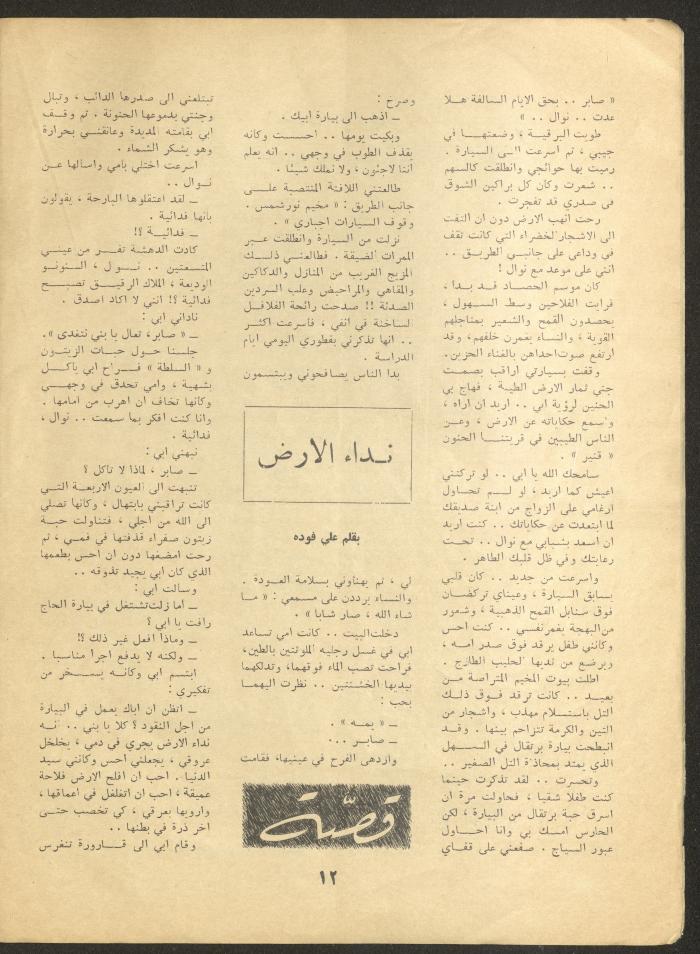 « صابر .. بحق الايام السالفة هلا
عدت .. نوال .. »
طويت البرقية ، وضعتها في
جيبي ، ثم اسرعت الى السيارة .
رميت بها حوائجي وانطلقت كالسهم
.. شعرت وكأن كل براكين الشوق
في صدري قد تفجرت .
رحت انهب الارض دون ان التفت
الى الاشجار الخضراء التي كانت تقف
في وداعي على جانبي الطريق ..
انني على موعد مع نوال !
كان موسم الحصاد قد بدا ،
فرايت الفلاحين وسط السهول ،
يحصدون القمح والشعير بمناجلهم
القوية ، والنساء يغمرن خلفهم، وقد
ارتفع صوت احداهن بالغناء الحزين.
وقفت بسيارتي اراقب بصمت
جني ثمار الارض الطيبة ، فهاج بي
الحنين لرؤية ابي .. اريد ان اراه ،
واسمع حكاياته عن الارض ، وعن
الناس الطيبين في قريتنا الحنون
« قنير » .
سامحك الله يا ابي .. لو تركتني
اعيش كما اريد ، لو لم تحاول
ارغامي على الزواج من ابنة صديقك
لما ابتعدت عن حكاياتك .. كنت اريد
ان اسعد بشبابي مع نوال .. تحت
رعايتك وفي ظل قلبك الطاهر .
واسرعت من جديد .. كان قلبي
يسابق السيارة ، وعيناي تركضان
فوق سنابل القمح الذهبية ، وشعور
من البهجة يغمر نفسي .. كنت احس
وكأنني طفل يرقد فوق صدر امه ،
ويرضع من ثديها الحليب الطازج .
اطلت بيوت المخيم المتراصة من
بعيد .. كانت ترقد فوق ذلك
التل باستسلام مهذب ، واشجار من
التين والكرمة تتزاحم بينها . وقد
انبطحت بيارة برتقال في السهل
الذي يمتد بمحاذاة التل الصغير ..
وتحسرت .. لقد تذكرت حينما
كنت طفلا شقيا ، فحاولت مرة ان
اسرق حبة برتقال من البيارة ، لكن
الحارس امسك بي وانا احاول
عبور السياج . صفعني على قفاي
وصرخ :
ــ اذهب الى بيارة ابيك .
وبكيت يومها .. احسست وكأنه
يقذف الطوب في وجهي .. انه يعلم
اننا لاجئون ، ولا نملك شيئا .
طالعتني اللافتة المنتصبة على
جانب الطريق : « مخيم نورشمس .
وقوف السيارات اجباري » .
نزلت من السيارة وانطلقت عبر
الممرات الضيقة . فطالعني ذلك
المزيج الغريب من المنازل والدكاكين
والمقاهي والمراحيض وعلب السردين
الصدئة !! صدحت رائحة الفلافل
الساخنة في انفي ، فأسرعت اكثر
.. انها تذكرني بفطوري اليومي ايام
الدراسة .
بدا الناس يصافحوني ويبتسمون
نداء الارض
بقلم علي فوده
لي ، ثم يهنأوني بسلامة العودة .
والنساء يرددن على مسمعي : « ما
شاء الله ، صار شابا » .
دخلت البيت .. كانت امي تساعد
ابي في غسل رجليه الملوثتين بالطين،
فراحت تصب الماء فوقهما، وتدلكهما
بيديها الخشنتين .. نظرت اليهما
بحب :
ــ « يمه » .
ــ صابر ..
وازدهى الفرح في عينيها، فقامت
قصّة
تبتلعني الى صدرها الدائب ، وتبال
وجنتي بدموعها الحنونة . ثم وقف
ابي بقامته المديدة وعانقني بحرارة
وهو يشكر السماء .
اسرعت اختلي بأمي واسألها عن
نوال ..
ــ لقد اعتقلوها البارحة ، يقولون
بأنها فدائية .
ــ فدائية ؟!
كادت الدهشة تفر من عيني
المتسعتين .. نوال ، السنونو
الوديعة ، الملاك الرقيق تصبح
فدائية ؟! انني لا اكاد اصدق .
ناداني ابي :
ــ « صابر، تعال يا بني نتغدى ».
جلسنا حول حبات الزيتون
و « السلطة » فراح ابي يأكل
بشهية ، وامي تحدق في وجهي
وكأنها تخاف ان اهرب من امامها .
وانا كنت افكر بما سمعت .. نوال ،
فدائية .
نبهني ابي :
ــ صابر ، لماذا لا تأكل ؟
تنبهت الى العيون الاربعة التي
كانت تراقبني بابتهال ، وكأنها تصلي
الى الله من اجلي ، فتناولت حبة
زيتون صفراء قذفتها في فمي ، ثم
رحت امضغها دون ان احس بطعمها
الذي كان ابي يجيد تذوقه ..
وسألت ابي :
ــ أما زلت تشتغل في بيارة الحاج
رافت يا ابي ؟
ــ وماذا افعل غير ذلك ؟!
ــ ولكنه لا يدفع اجرا مناسبا .
ابتسم ابي وكأنه يسخر من
تفكيري :
ــ اتظن ان اباك يعمل في البيارة
من اجل النقود ؟ كلا يا بني .. انه
نداء الارض يجري في دمي ، يخلخل
عروقي ، يجعلني احس وكأنني سيد
الدنيا . احب ان افلح الارض فلاحة
عميقة ، احب ان اتغلغل في اعماقها ،
وارويها بعرقي ، كي تخصب حتى
اخر ذرة في بطنها ..
وقام ابي الى قارورة تنفرس
١٢